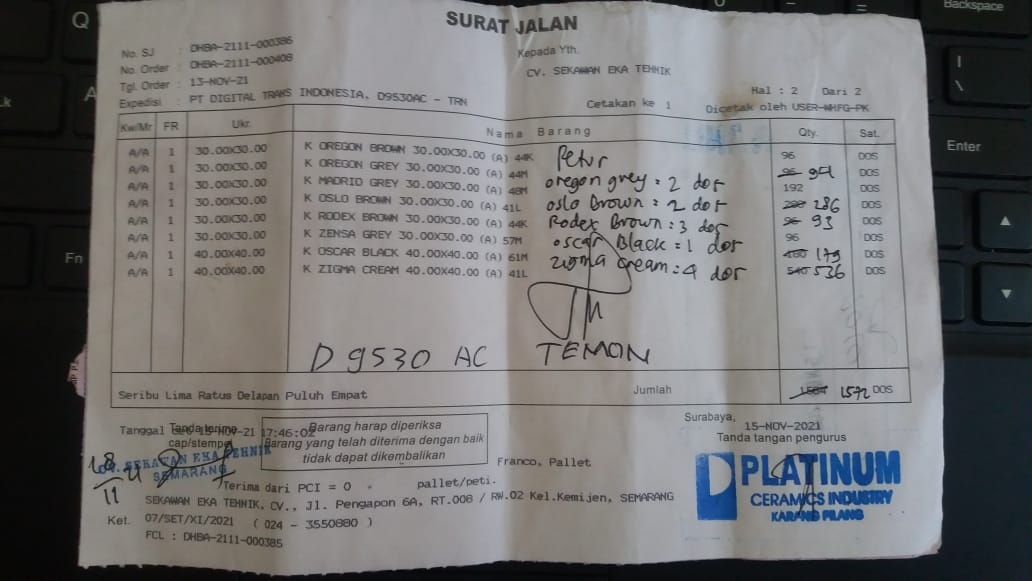 SURAT JALAN
No. SJ : DHBA-2111-000386
No. Order : DHBA-2111-000408
Tgl. Order : 13-NOV-21
Expedisi : PT DIGITAL TRANS INDONESIA, D9530AC - TRN
Kepada Yth.
CV. SEKAWAN EKA TEHNIK
Hal : 2 Dari 2
Cetakan ke 1 Dicetak oleh USER-WHFG-PK
Kw/Mr FR Ukr. Nama Barang Qty. Sat.
A/A 1 30.00X30.00 K OREGON BROWN 30.00X30.00 (A) 44K 96 DOS
A/A 1 30.00X30.00 K OREGON GREY 30.00X30.00 (A) 44M 96 94 DOS
A/A 1 30.00X30.00 K MADRID GREY 30.00X30.00 (A) 48M 192 DOS
A/A 1 30.00X30.00 K OSLO BROWN 30.00X30.00 (A) 41L 288 286 DOS
A/A 1 30.00X30.00 K RODEX BROWN 30.00X30.00 (A) 44K 96 93 DOS
A/A 1 30.00X30.00 K ZENSA GREY 30.00X30.00 (A) 57M 96 DOS
A/A 1 40.00X40.00 K OSCAR BLACK 40.00X40.00 (A) 61M 180 179 DOS
A/A 1 40.00X40.00 K ZIGMA CREAM 40.00X40.00 (A) 41L 540 536 DOS
Retur
oregon grey = 2 dos
oslo Brown = 2 dos
Rodex Brown = 3 dos
oscar Black = 1 dos
zigma cream = 4 dos
D 9530 AC TEMON
Seribu Lima Ratus Delapan Puluh Empat Jumlah 1584 1572 DOS
Tanggal cet 15-NOV-21 17:46:02
Tanda terima
cap/stempel
CV. SEKAWAN EKA TEHNIK
SEMARANG
18/11
Barang harap diperiksa
Barang yang telah diterima dengan baik
tidak dapat dikembalikan
Surabaya,
15-NOV-2021
Tanda tangan pengurus
PLATINUM
CERAMICS INDUSTRY
KARANG PILANG
Franco, Pallet
Terima dari PCI = 0 pallet/peti.
SEKAWAN EKA TEHNIK, CV., Jl. Pengapon 6A, RT.008 / RW.02 Kel.Kemijen, SEMARANG
Ket. 07/SET/XI/2021 ( 024 - 3550880 )
FCL : DHBA-2111-000385
Q
A
Fn
Backspace
Enter